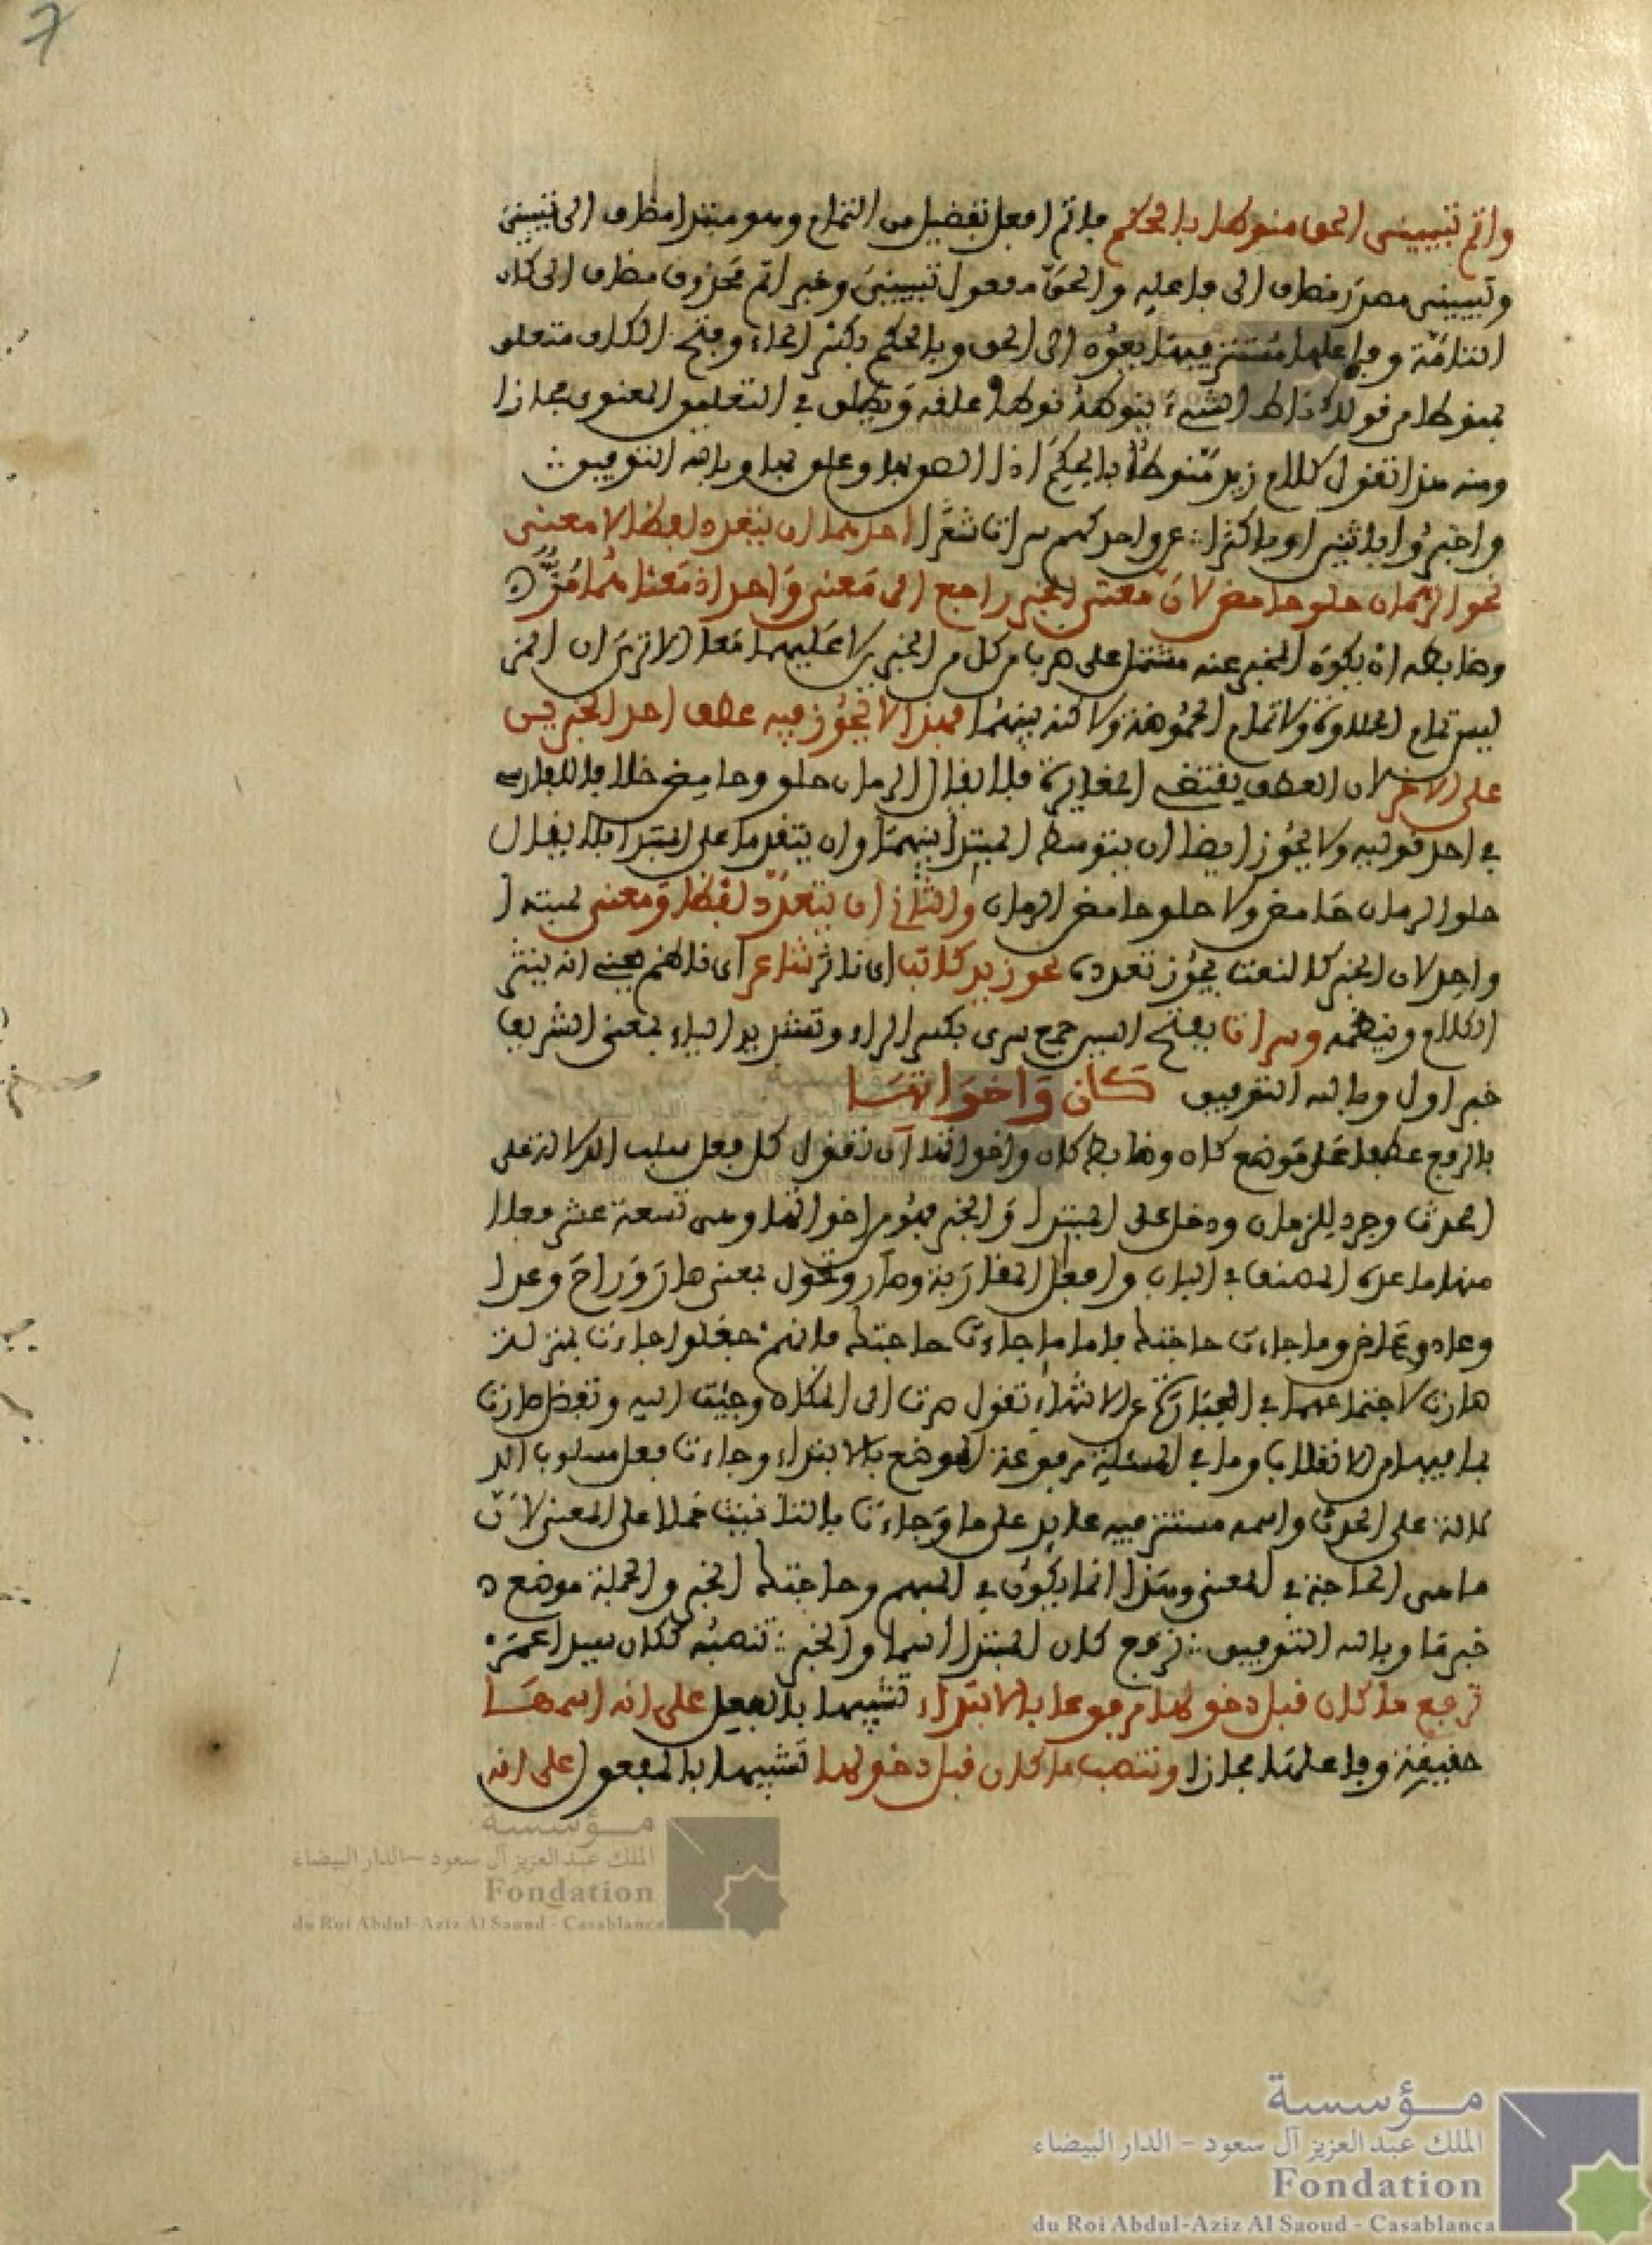 7
واتم تبييني الحق منوطا بالحكم فاتم افعل تفضيل من التمام وهو مبتدا مضاف الى تبييني
وتبييني مصدر مضاف الى فاعله والحق مفعول تبييني وخبر اتم محذوف مضاف الى كان
التامة وفاعلها مستتر فيها يعود الى الحق وبالحكم بكسر الحاء وفتح الكاف متعلق
بمنوطا من قولك ناط الشيء ينوطه نوطا علقه ويطلق في التعليق المعنوي مجازا
ومنه هذا تقول كلام زيد منوط بالحكم اذا الصق بها وعلق بها وبالله التوفيق
واخبروا باثنين او باكثرا عن واحد كهم سراة شعرا احدهما ان يتعدد لفظا لا معنى
نحو الرمان حلو حامض لان معنى الخبر راجع الى معنى واحد اذ معناهما مز
وضابطه ان يكون المخبر عنه مشتمل على طرف من كل من الخبرين لا عليهما معا الا ترى ان المز
ليس تمام الحلاوة ولا تمام الحموضة ولاكنه بينهما فهذا لا يجوز فيه عطف احد الخبرين
على الاخر لان العطف يقتضي المغايرة فلا يقال الرمان حلو وحامض خلافا للفارسي
في احد قوليه ولا يجوز ايضا ان يتوسط المبتدا بينهما وان يتقدما على المبتدا فلا يقال
حلو الرمان حامض ولا حلو حامض الرمان والثاني ان يتعدد لفظا ومعنى لمبتدا
واحد لان الخبر كالنعت يجوز تعدده نحو زيد كاتب اي ناثر شاعر اي ناظم يعني انه ينثر
الكلام وينظمه وسراة بفتح السين جمع سري بكسر الراء وتشديد الياء بمعنى الشريف
خبر اول وبالله التوفيق كان واخواتها
بالرفع عطفا على موضع كان وضابط كان واخواتها ان تقول كل فعل سلب الدلالة على
الحدث وجرد للزمان ودخل على المبتدا والخبر فهو من اخواتها وهي تسعة عشر فعلا
منها ما عده المصنف في الباب وافعال المقاربة وصار وتحول بمعنى صار وراح وغدا
وعاد وما جاءت حاجتك فاما ما جاءت حاجتك فانهم جعلوا جاءت بمنزلة
صارت لاجتماعهما في العبارة عن الانتهاء تقول صرت الى المكان وجئت اليه
بما فيهما من الانتقال وما في المسئلة مرفوعة الموضع بالابتداء وجاءت فعل مسلوب الد
لالة على الحدث واسمه مستتر فيه عايد على ما وجاءت بالتانيث حملا على المعنى لان
ما هي الحاجة في المعنى وهذا انما يكون في المبهم وحاجتك الخبر والجملة موضع
خبر ما وبالله التوفيق ترفع كان المبتدا اسما والخبر تنصبه ككان سيدا عمر
ترفع ما كان قبل دخولها مرفوعا بالابتداء تشبيها بالفعل على انه اسمها
حقيقة وفاعلها مجازا وتنصب ما كان قبل دخولها تشبيها بالمفعول على انه
مؤسسة
الملك عبد العزيز آل سعود - الدار البيضاء
Fondation
du Roi Abdul-Aziz Al Saoud - Casablanca
مؤسسة
الملك عبد العزيز آل سعود - الدار البيضاء
Fondation
du Roi Abdul-Aziz Al Saoud - Casablanca